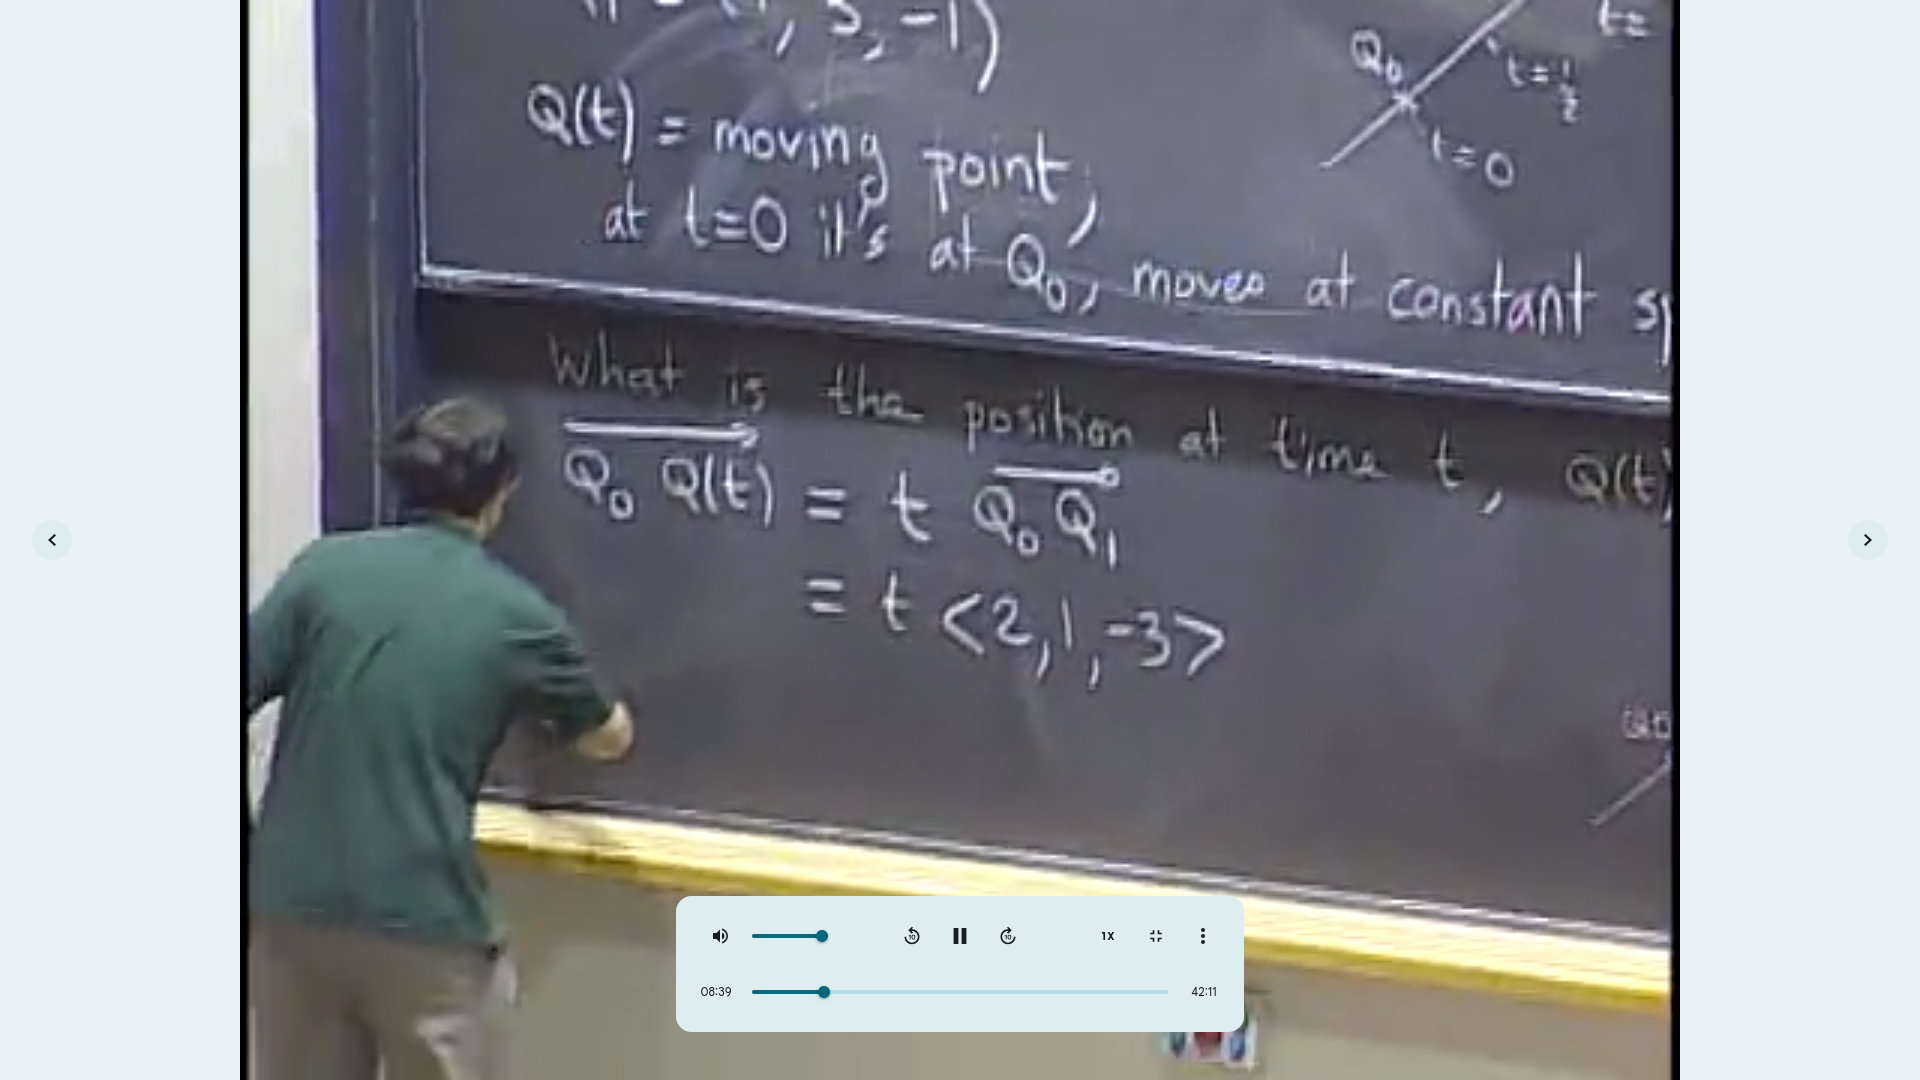 , 3, -1)
Q₀
t=
t=½
t=0
Q(t) = moving point,
at t=0 it's at Q₀, moves at constant sp
What is the position at time t, Q(t)
Q₀Q(t) = t Q₀Q₁
= t <2, 1, -3>
1X
08:39
42:11